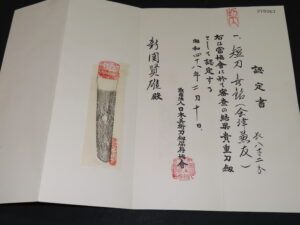 認定書
一、短刀 無銘(会津兼友) 長八寸二分
右は當協會に於て審査の結果貴重刀剣
として認定する
昭和四十八年二月十日
財團法人日本美術刀剣保存協會
新國賢雄殿